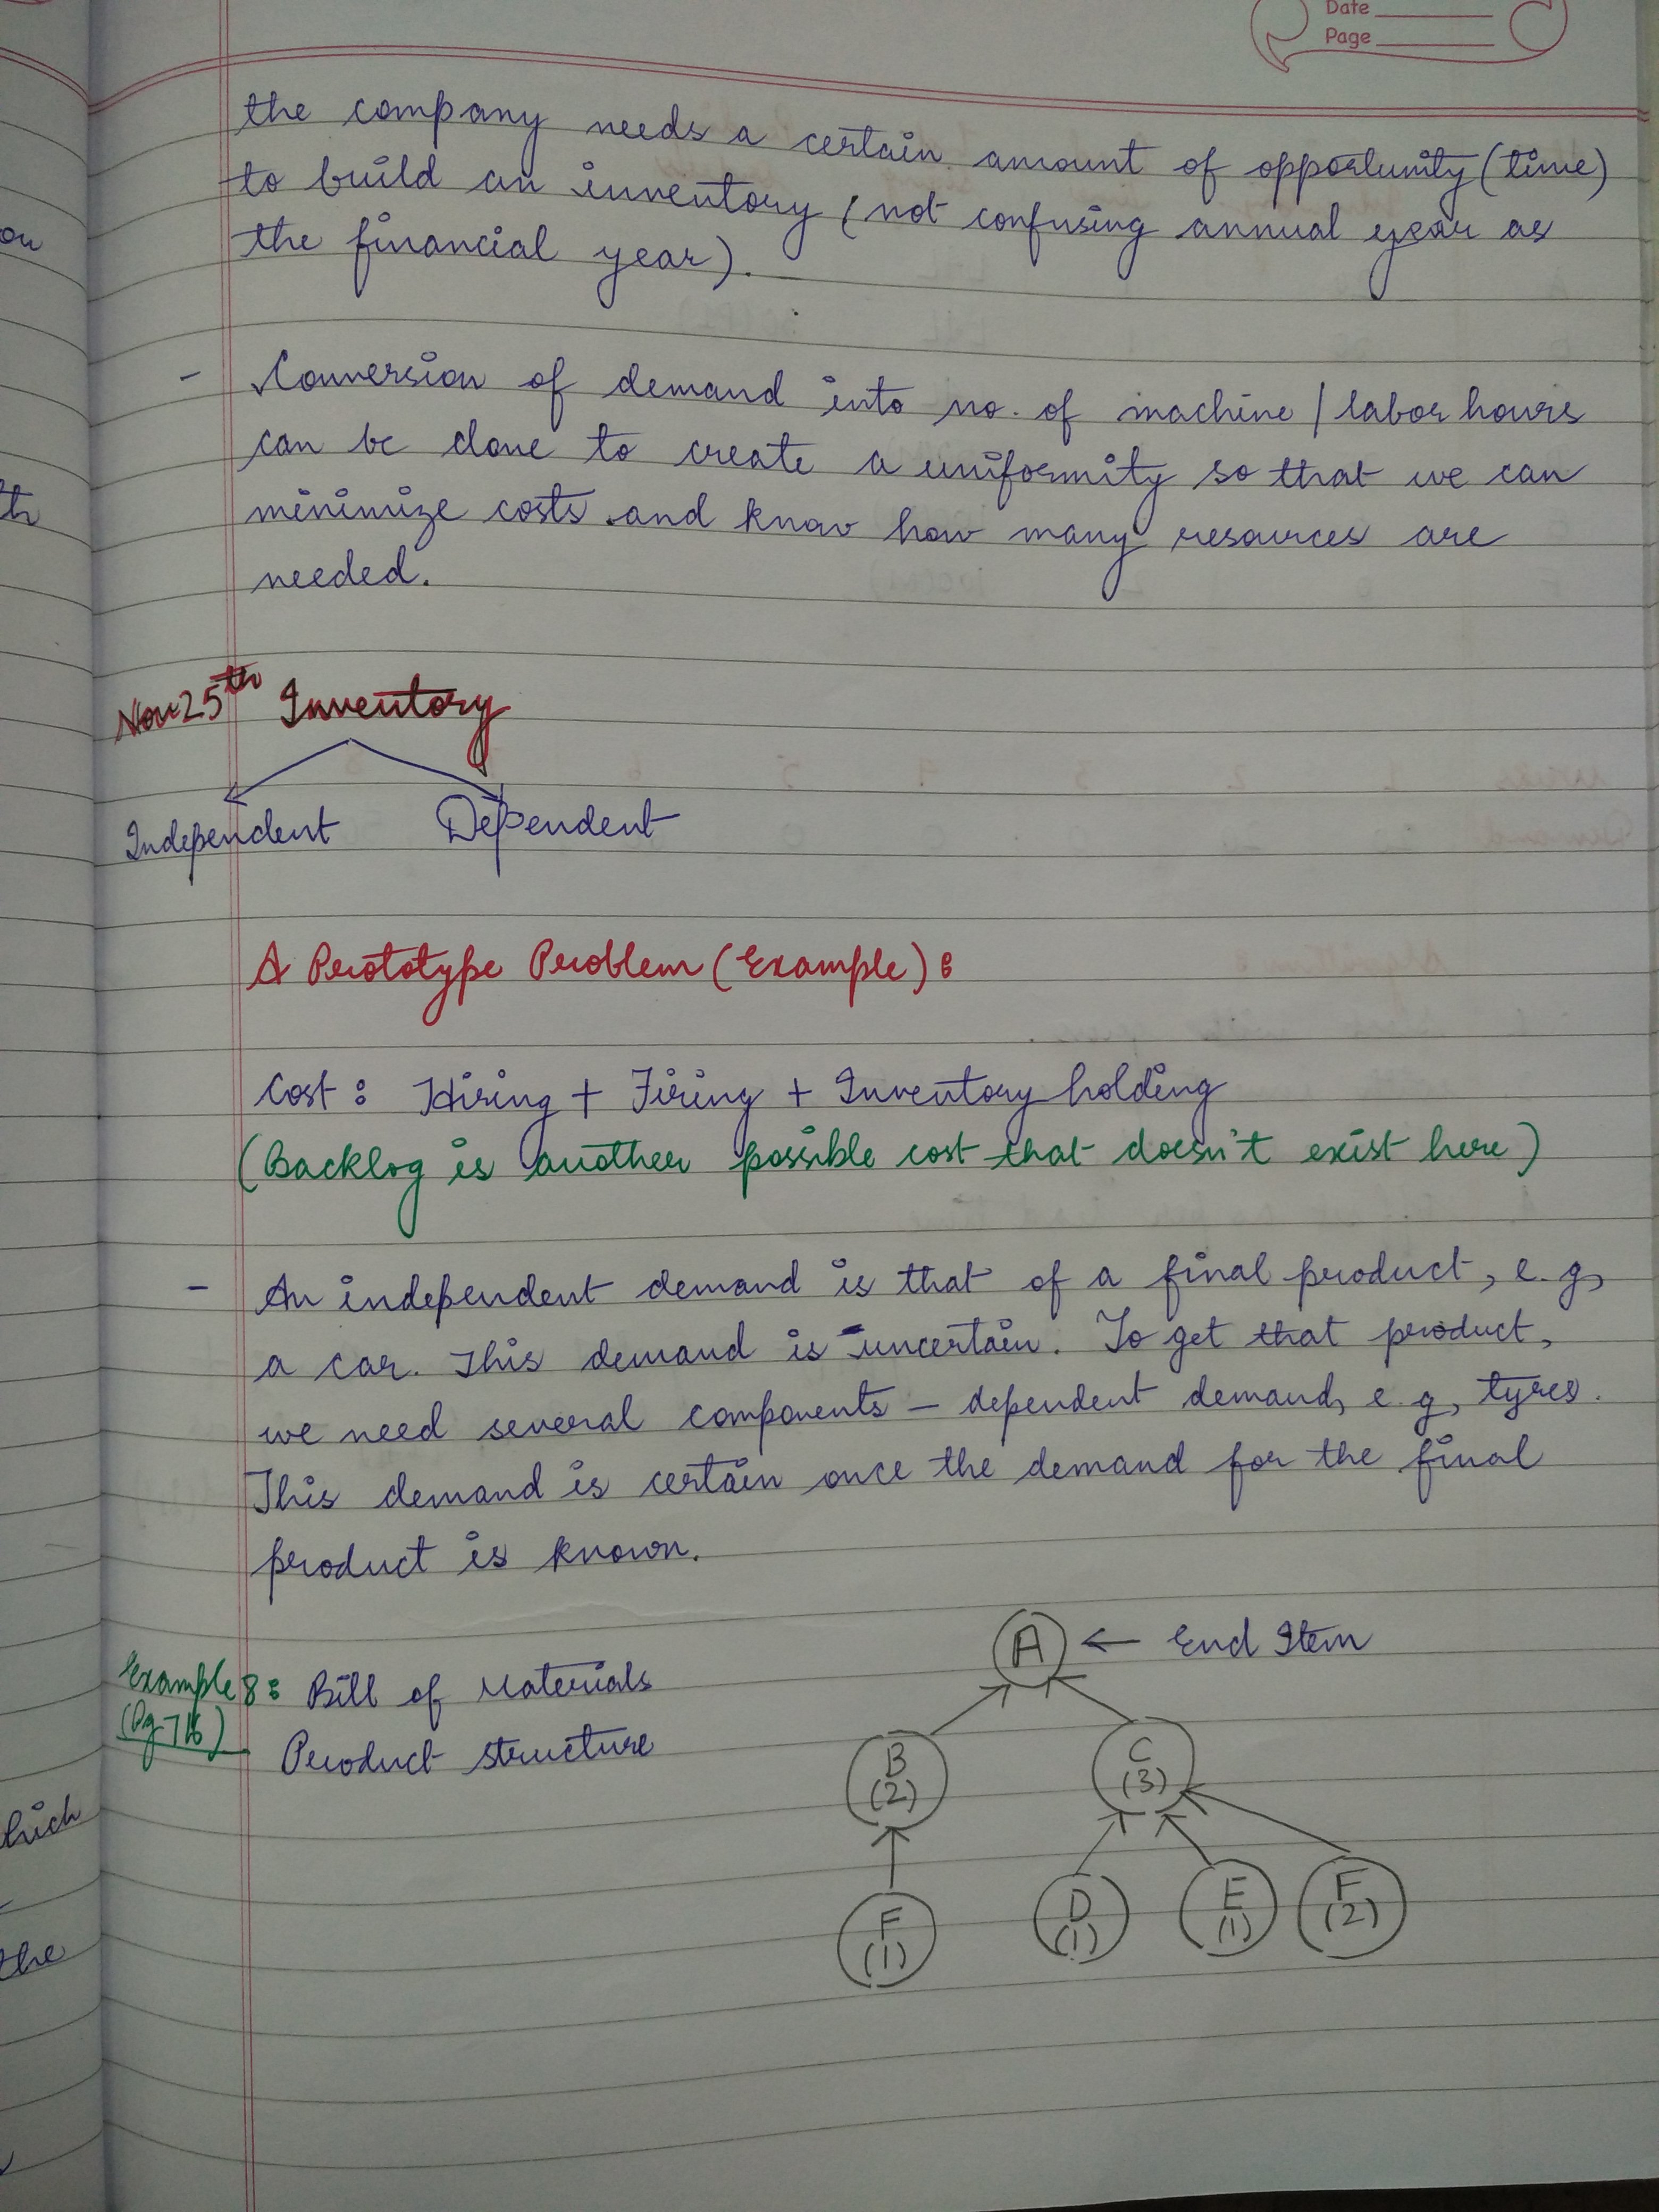 Date
Page
the company needs a certain amount of opportunity (time)
to build an inventory (not confusing annual year as
the financial year).
- Conversion of demand into no. of machine / labor hours
can be done to create a uniformity so that we can
minimize costs and know how many resources are
needed.
Nov 25th Inventory
Independent Dependent
A Prototype Problem (Example):
Cost: Hiring + Firing + Inventory holding
(Backlog is another possible cost that doesn't exist here)
- An independent demand is that of a final product, e.g,
a car. This demand is uncertain. To get that product,
we need several components - dependent demand, e.g, tyres.
This demand is certain once the demand for the final
product is known.
A ← End Item
Example 8: Bill of Materials
(Pg-716) Product structure
B
(2)
C
(3)
F
(1)
D
(1)
E
(1)
F
(2)
ou
th
hich
the